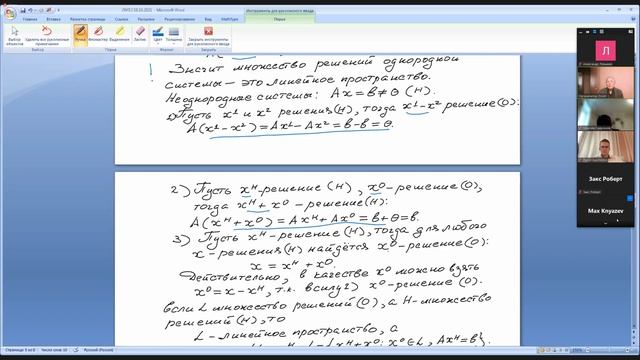 Microsoft Word
Инструменты для рукописного ввода
Главная
Вставка
Разметка страницы
Ссылки
Рассылки
Рецензирование
Вид
MathType
Перья
Выбор объектов
Удалить все рукописные примечания
Ручка
Фломастер
Выделение
Ластик
Цвет
Толщина
Закрыть инструменты для рукописного ввода
Значит множество решений однородной
системы – это линейное пространство.
Неоднородные системы: Ax = в ≠ θ (Н).
1) Пусть x¹ и x² решения (Н), тогда x¹-x² решение (О):
A(x¹-x²) = Ax¹-Ax² = в-в = θ.
2) Пусть xᴴ-решение (Н), x⁰-решение (О),
тогда xᴴ+x⁰ - решение (Н):
A(xᴴ+x⁰) = Axᴴ+Ax⁰ = в+θ = в.
3) Пусть xᴴ-решение (Н), тогда для любого
x-решения (Н) найдётся x⁰-решение (О):
x = xᴴ + x⁰.
Действительно, в качестве x⁰ можно взять
x⁰ = x-xᴴ, т.к. в силу 1) x⁰-решение (О).
Если L множество решений (О), а H-множество
решений (Н), то
L - линейное пространство, а
Закс Роберт
Закс_Роберт
Max Knyazev
Русский (Россия)